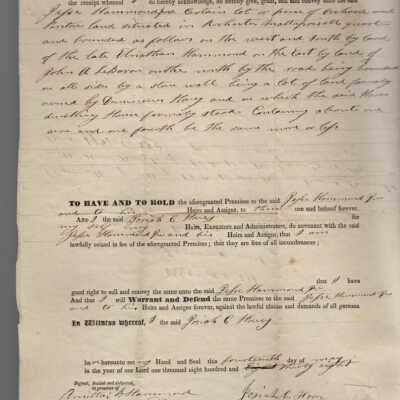 the receipt whereof I do hereby acknowledge, do hereby give, grant, and convey unto the said
Jesse Hammond Jur a Certain Lot or piece of Orchard and
Pasture land situated in Rochester Mattapoisett
and bounded as follows on the west and South by land
of the late Elnathan Hammond on the East by land of
John A LeBaron on the north by the road being bounded
on all sides by a stone wall being a lot of land formerly
owned by and on which the said
dwelling House formerly stood Containing about one
acre and one fourth be the same more or less
TO HAVE AND TO HOLD the aforegranted Premises to the said Jesse Hammond Jur
and to his Heirs and Assigns, to their use and behoof forever.
AND I the said Josiah C for
my self my Heirs, Executors and Administrators, do covenant with the said
Jesse Hammond Jur and his Heirs and Assigns, that I am
lawfully seized in fee of the aforegranted Premises; that they are free of all incumbrances;
that I have
good right to sell and convey the same unto the said Jesse Hammond Jur
And that I will Warrant and Defend the same Premises to the said Jesse Hammond Jur
and to his Heirs and Assigns forever, against the lawful claims and demands of all persons
In Witness whereof, I the said Josiah C
have hereunto set my Hand and Seal this fourteenth day of May
in the year of our Lord one thousand eight hundred and thirty eight
Signed, Sealed and delivered,
in presence of
Hammond
Josiah C.